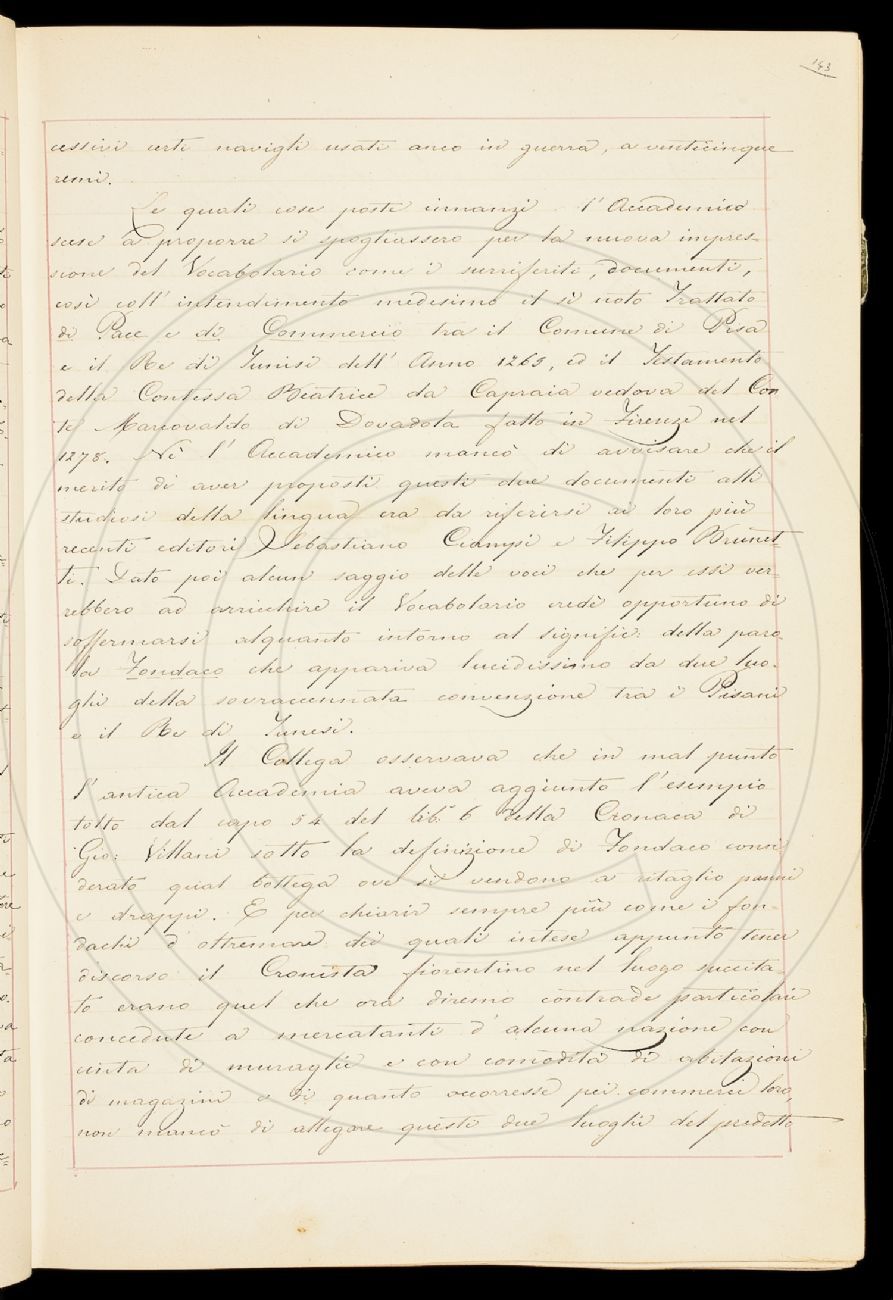 143
cessivi certi navigli usati anco in guerra, a venticinque
remi.
Le quali cose poste innanzi l'Accademico
scese a proporre si spogliassero per la nuova impres-
sione del Vocabolario come i surriferiti, documenti,
così coll'intendimento medesimo il sì noto Trattato
di Pace e di Commercio tra il Comune di Pisa
e il Re di Tunisi dell'Anno 1265, ed il Testamento
della Contessa Beatrice da Capraia vedova del Con
te Marcovaldo di Dovadola fatto in Firenze nel
1278. Nè l'Accademico mancò di avvisare che il
merito di aver proposti questi due documenti alli
studiosi della lingua era da riferirsi ai loro più
recenti editori Sebastiano Ciampi e Filippo Brunet-
ti. Dato poi alcun saggio delle voci che per essi ver-
rebbero ad arricchire il Vocabolario credè opportuno di
soffermarsi alquanto intorno al signific: della paro
la Fondaco che appariva lucidissimo da due luo-
ghi della sovraccennata convenzione tra i Pisani
e il Re di Tunesi.
Il Collega osservava che in mal punto
l'antica Accademia aveva aggiunto l'esempio
tolto dal capo 54 del lib. 6 della Cronaca di
Gio: Villani sotto la definizione di Fondaco consi
derato qual bottega ove si vendono a ritaglio panni
e drappi. E per chiarir sempre più come i fon-
dachi d'oltremare dei quali intese appunto tener
discorso il Cronista fiorentino nel luogo succita-
to erano quel che ora diremo contrade particolari
concedute a mercatanti d'alcuna nazione con
cinta di muraglie e con comodità di abitazioni
di magazini e di quanto occorresse pei commerci loro,
non mancò di allegare questi due luoghi del predetto